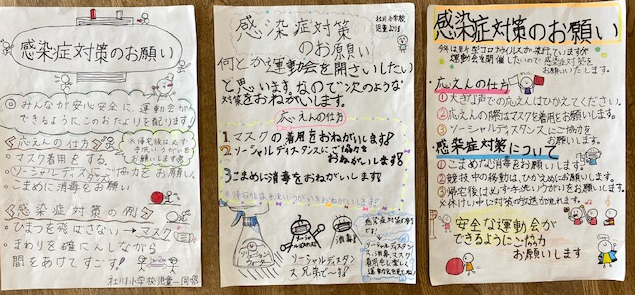 感染症対策のお願い
◎みんなが安心安全に、運動会が
できるようにこのおたよりを配ります!
応えんの仕方
マスク着用をする。
ソーシャルディスタンスに協力をお願い。
こまめに消毒をお願い
※帰宅後は必ず
手洗いうがいを
お願いします
感染症対策の例
ひまつを飛ばさない→マスク
まわりを確にんしながら
間をあけてすごす!
杜川小学校児童一同
感染症対策
のお願い
杜川小学校
児童より
何とか運動会を開さいしたい
と思います。なので次のような
対策をおねがいします。
応えんの仕方
1マスクの着用をおねがいします!
2ソーシャルディスタンスにご協力を
おねがいします!
3こまめに消毒をおねがいします!
消毒!
ソーシャルディスタン
ス兄弟で〜す!
ソーシャルディスタン
ス、消毒、マスク
着用をし楽しく
感染症対策のお願い
今年は新型コロナウイルスが流行していますが
運動会を開催したいので感染症対策を
お願いいたします。
・応えんの仕方
①大きな声での応えんはひかえてください。
②応えんの際はマスク着用をお願いします。
③ソーシャルディスタンスにご協力を
お願いします。
感染症対策について
①こまめな消毒をお願いします。
②競技中の移動は、ひかえめにお願いします。
③帰宅後は必ず手洗いうがいをお願いします。
※休けい中に対策の放送が流れます。
安全な運動会が
できるようにご協力
お願いします